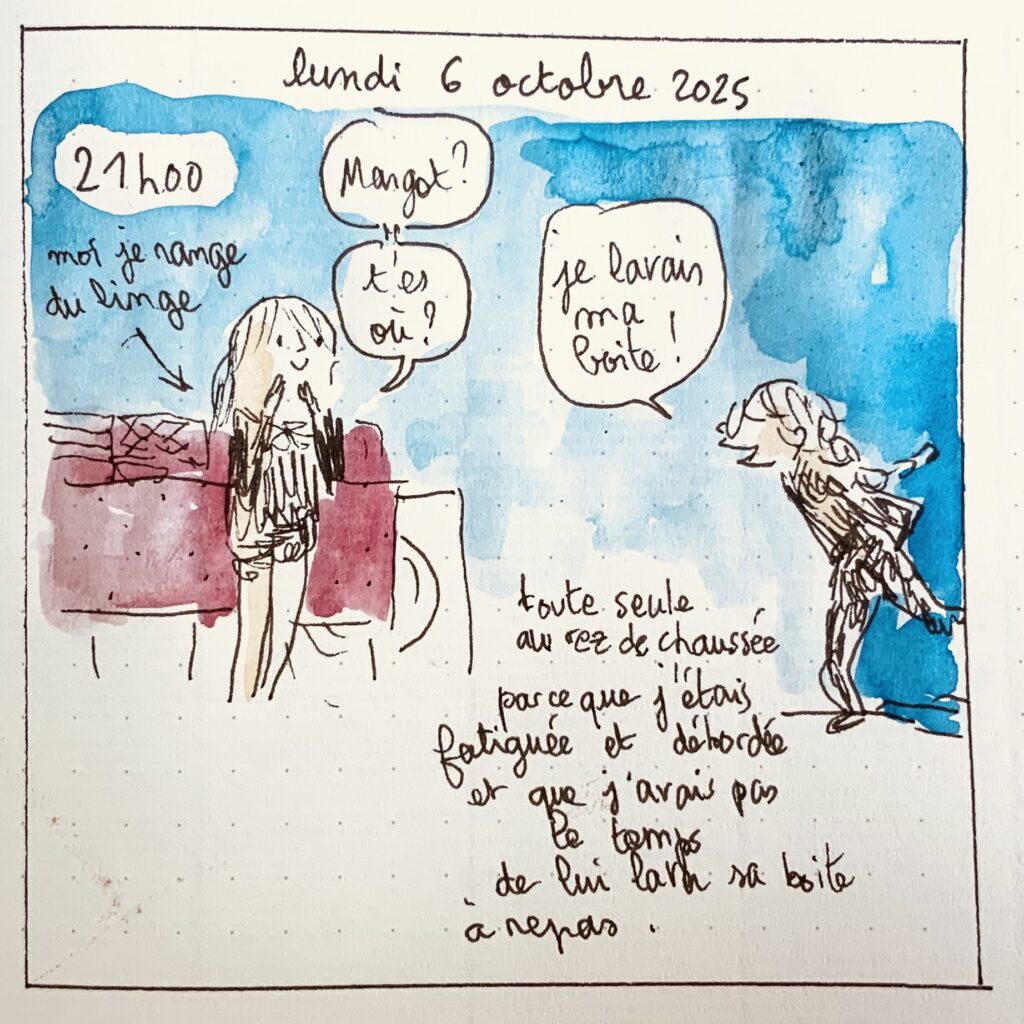 lundi 6 octobre 2025
21h00
moi je range
du linge
Margot?
t'es
où?
je lavais
ma
boite!
toute seule
au rez de chaussée
parce que j'étais
fatiguée et débordée
et que j'avais pas
le temps
de lui laver sa boite
à repas.